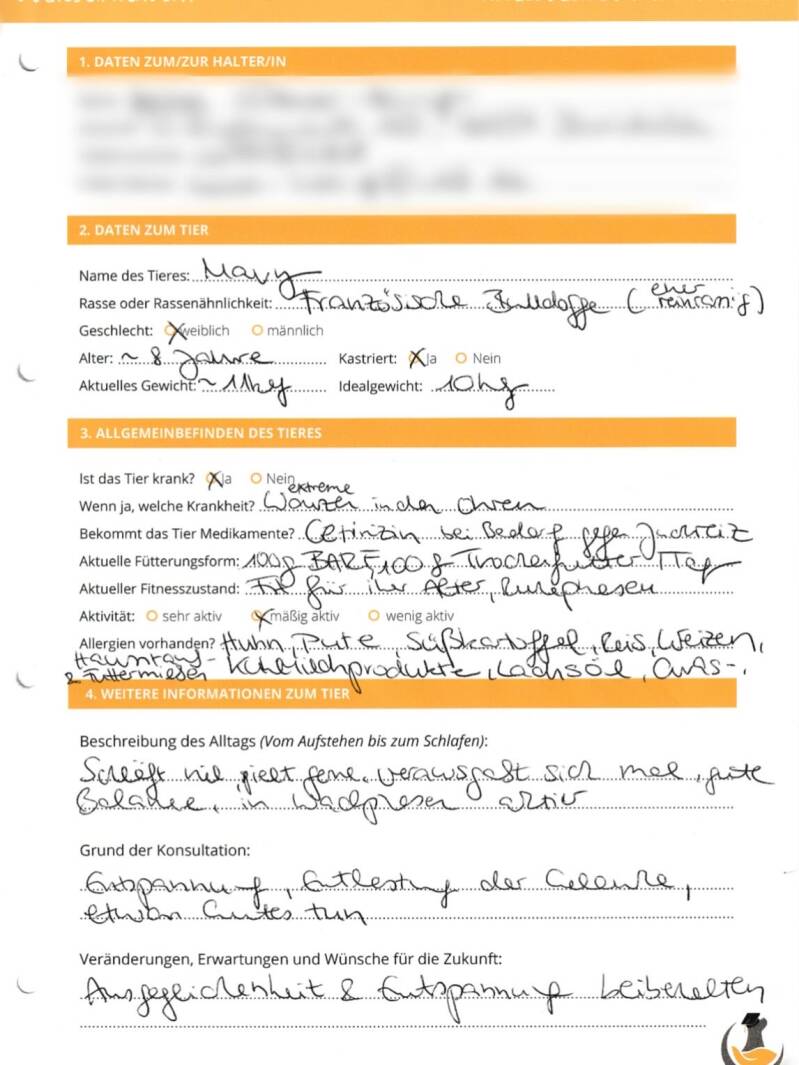 1. DATEN ZUM/ZUR HALTER/IN
2. DATEN ZUM TIER
Name des Tieres: Mavy
Rasse oder Rassenähnlichkeit: Französische Bulldogge (eher reinrassig)
Geschlecht: weiblich männlich
Alter: ~ 8 Jahre Kastriert: Ja Nein
Aktuelles Gewicht: ~ 11kg Idealgewicht: 10kg
3. ALLGEMEINBEFINDEN DES TIERES
Ist das Tier krank? Ja Nein
Wenn ja, welche Krankheit? extreme Warzen in den Ohren
Bekommt das Tier Medikamente? Cetirizin bei Bedarf gegen Juckreiz
Aktuelle Fütterungsform: 100g BARF, 100g Trockenfutter / Tag
Aktueller Fitnesszustand: Fit für ihr Alter, Ruhephasen
Aktivität: sehr aktiv mäßig aktiv wenig aktiv
Allergien vorhanden? Huhn, Pute, Süßkartoffel, Reis, Weizen,
Hausstaub- Kuhmilchprodukte, Lachsöl,
& Futtermilben
4. WEITERE INFORMATIONEN ZUM TIER
Beschreibung des Alltags (Vom Aufstehen bis zum Schlafen):
Schläft viel, spielt gerne, verausgabt sich mal, gute
Balance, in Wachphasen aktiv
Grund der Konsultation:
Entspannung, Entlastung der Gelenke,
etwas Gutes tun
Veränderungen, Erwartungen und Wünsche für die Zukunft:
Ausgeglichenheit & Entspannung beibehalten